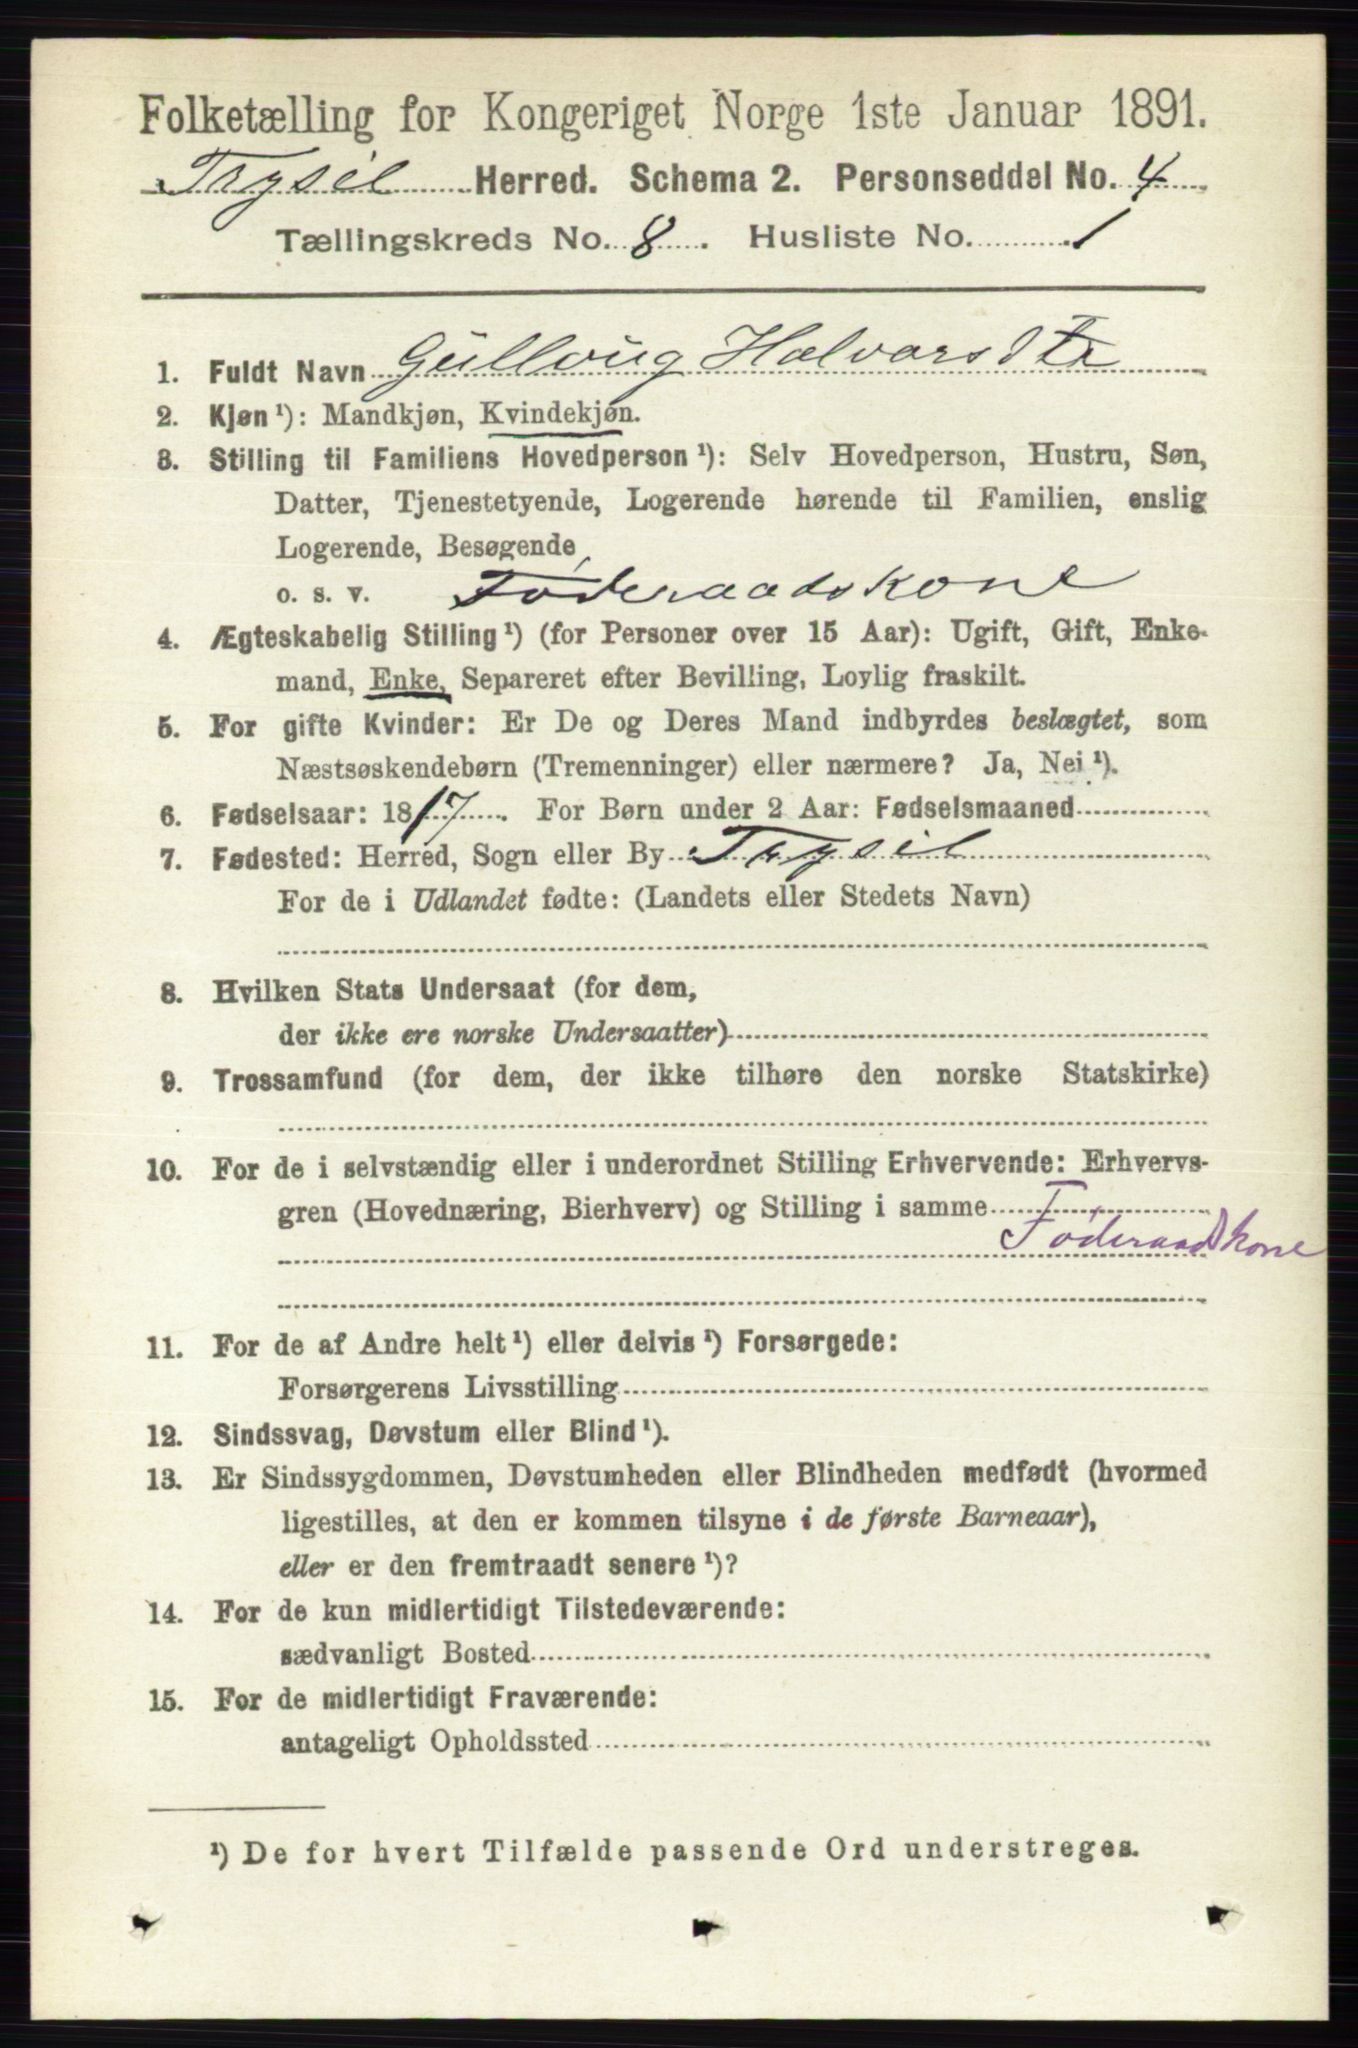 Folketælling for Kongeriget Norge 1ste Januar 1891.
Trysil Herred. Schema 2. Personseddel No. 4
Tællingskreds No. 8. Husliste No. 1
1. Fuldt Navn Gullaug Halvorsdtr
2. Kjøn ¹): Mandkjøn, Kvindekjøn.
3. Stilling til Familiens Hovedperson ¹): Selv Hovedperson, Hustru, Søn,
Datter, Tjenestetyende, Logerende hørende til Familien, enslig
Logerende, Besøgende
o. s. v. Føderaadskone
4. Ægteskabelig Stilling ¹) (for Personer over 15 Aar): Ugift, Gift, Enke-
mand, Enke, Separeret efter Bevilling, Lovlig fraskilt.
5. For gifte Kvinder: Er De og Deres Mand indbyrdes beslægtet, som
Næstsøskendebørn (Tremenninger) eller nærmere? Ja, Nei ¹).
6. Fødselsaar: 1817. For Børn under 2 Aar: Fødselsmaaned
7. Fødested: Herred, Sogn eller By Trysil
For de i Udlandet fødte: (Landets eller Stedets Navn)
8. Hvilken Stats Undersaat (for dem,
der ikke ere norske Undersaatter)
9. Trossamfund (for dem, der ikke tilhøre den norske Statskirke)
10. For de i selvstændig eller i underordnet Stilling Erhvervende: Erhvervs-
gren (Hovednæring, Bierhverv) og Stilling i samme
Føderaadskone
11. For de af Andre helt ¹) eller delvis ¹) Forsørgede:
Forsørgerens Livsstilling
12. Sindssvag, Døvstum eller Blind ¹).
13. Er Sindssygdommen, Døvstumheden eller Blindheden medfødt (hvormed
ligestilles, at den er kommen tilsyne i de første Barneaar),
eller er den fremtraadt senere ¹)?
14. For de kun midlertidigt Tilstedeværende:
sædvanligt Bosted
15. For de midlertidigt Fraværende:
antageligt Opholdssted
¹) De for hvert Tilfælde passende Ord understreges.